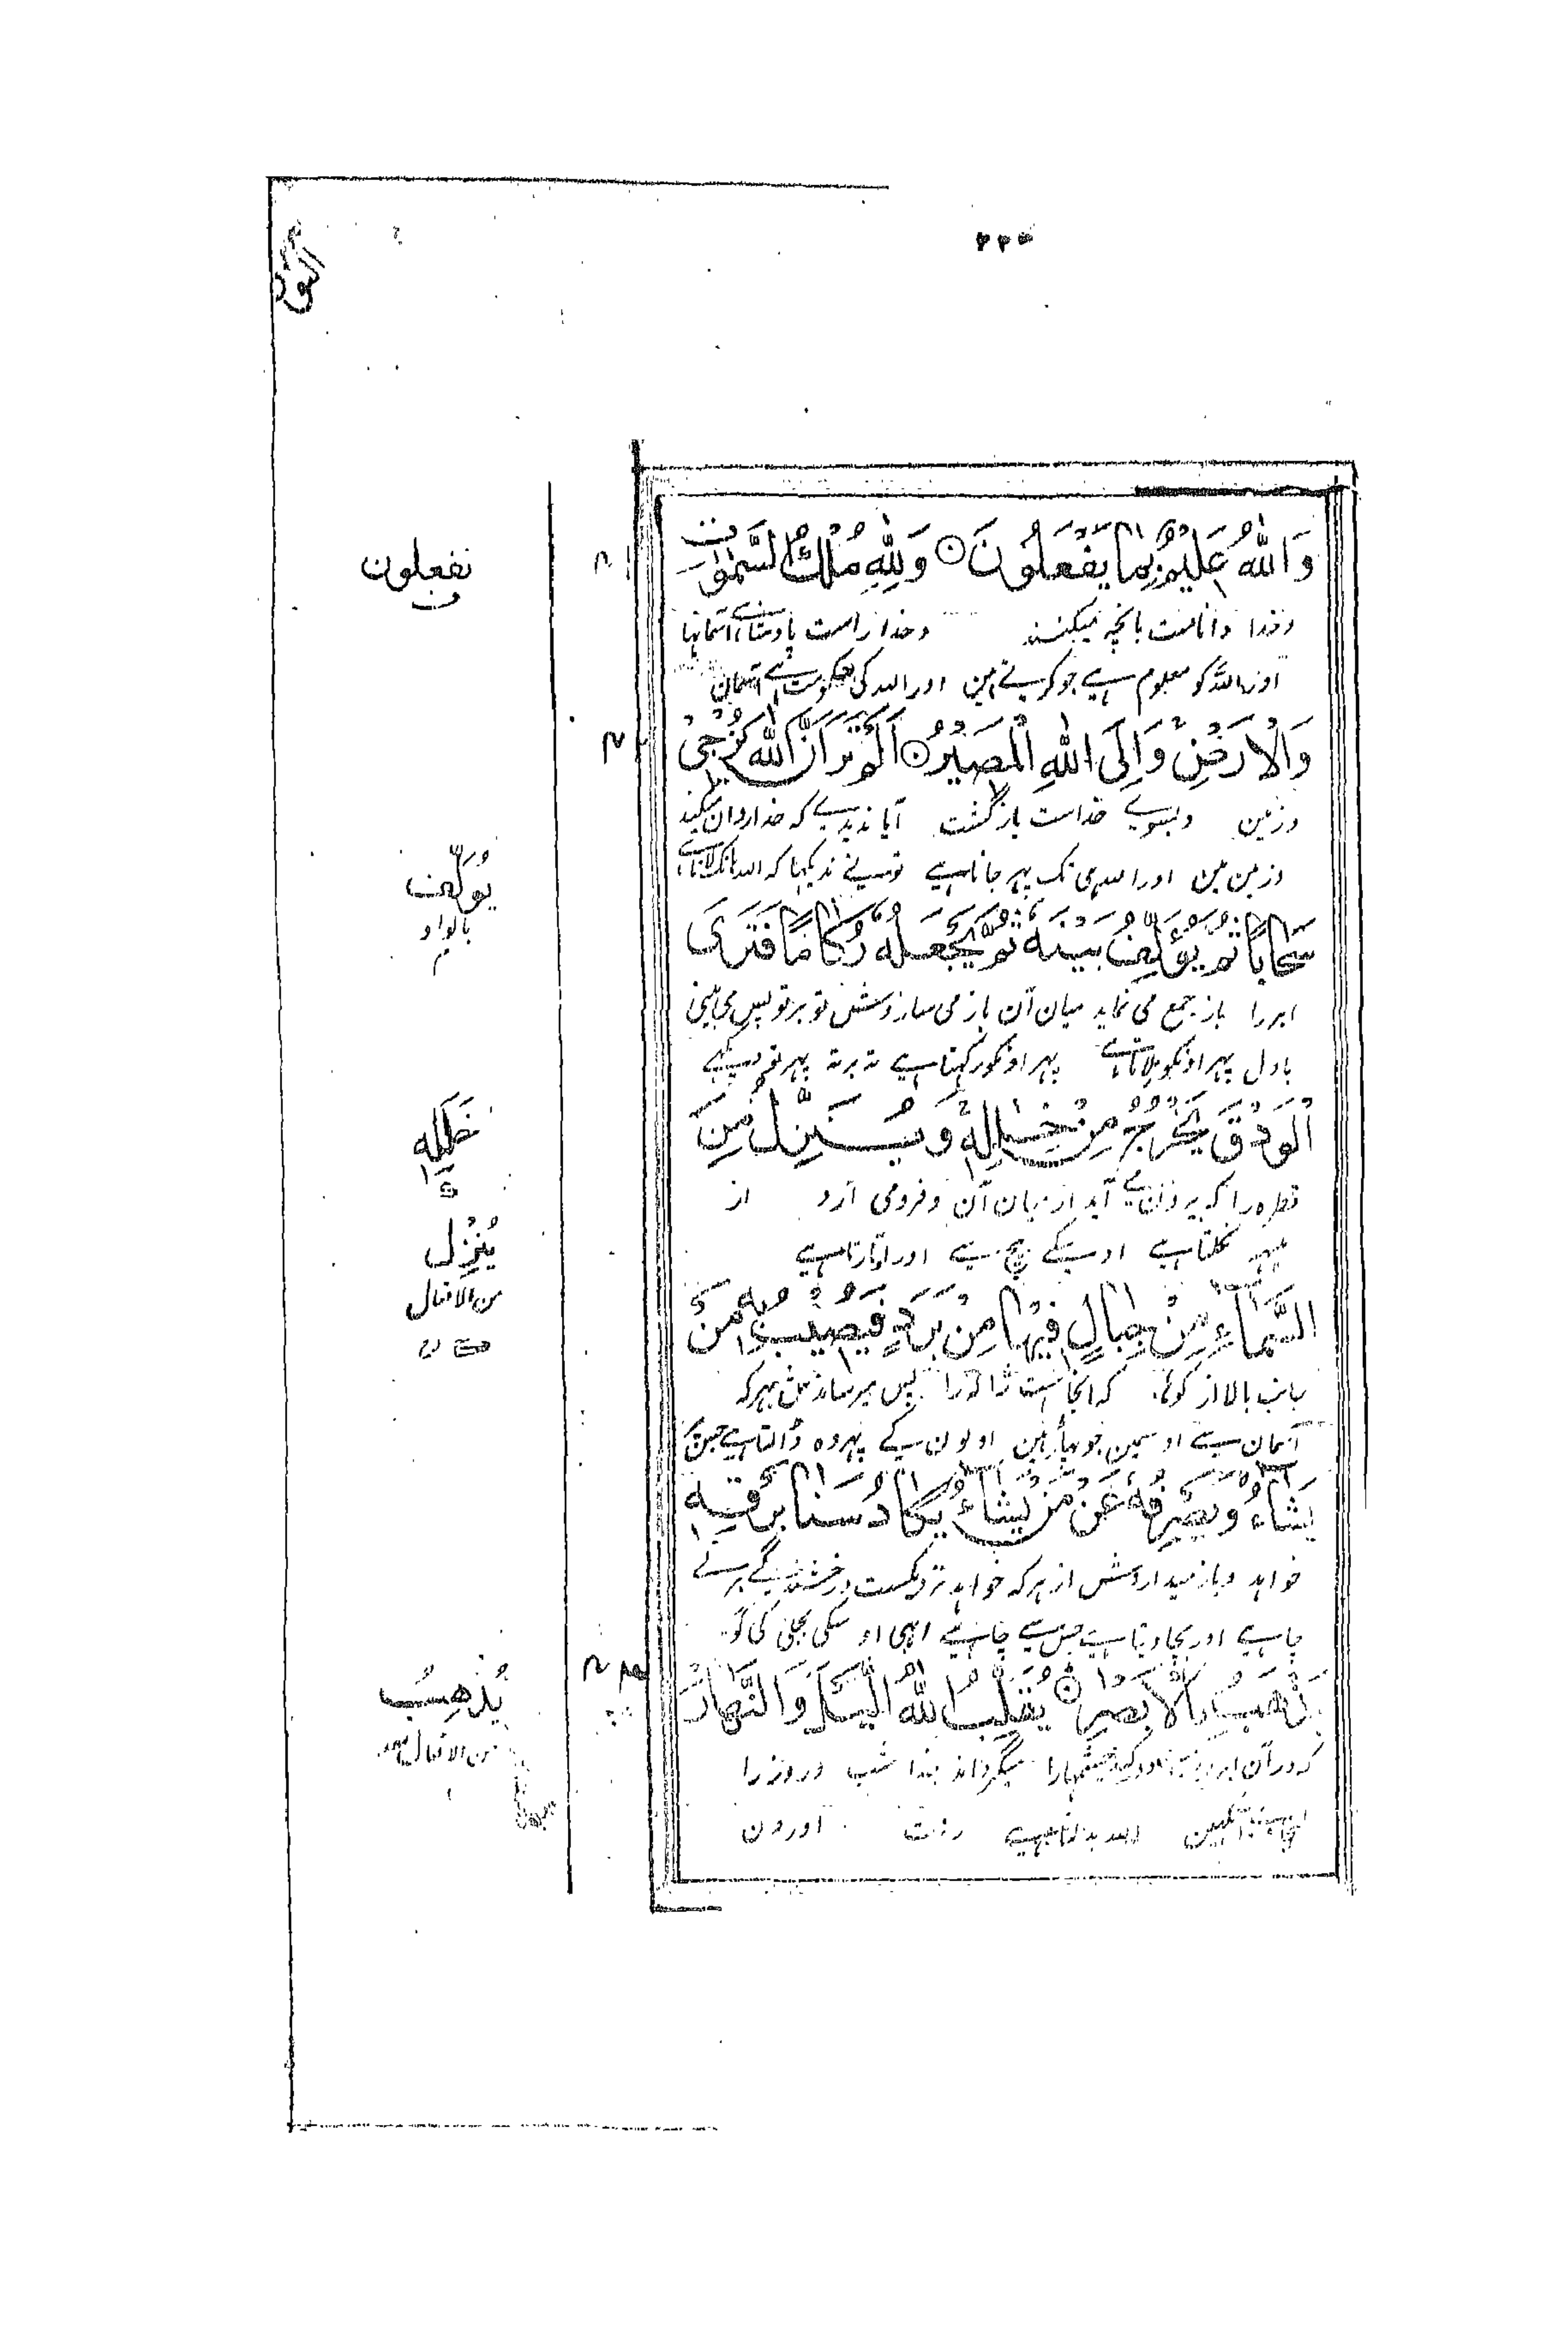 وَاللّٰهُ عَلِيْمٌۢ بِمَا يَفْعَلُوْنَ ۝ وَلِلّٰهِ مُلْكُ السَّمٰوٰتِ
وخدا داناست بانچه میکنند وخدا راست پادشاہی آسمانہا
اور اللہ کو معلوم ہے جو کرتے ہین اور اللہ کی حکومت ہے آسمان
وَالْاَرْضِ وَاِلَى اللّٰهِ الْمَصِيْرُ ۝ اَلَمْ تَرَ اَنَّ اللّٰهَ يُزْجِىْ
وزمین وبسوے خداست بازگشت آیا ندیدے که خدا روان میکند
وزمین مین اور اللہ ہی تک پہر جانا ہے تونے ندیکہا کہ اللہ ہانک لاتا ہے
سَحَابًا ثُمَّ يُؤَلِّفُ بَيْنَهٗ ثُمَّ يَجْعَلُهٗ رُكَامًا فَتَرَى
ابر را باز جمع می نماید میان آن باز می سازدش تو بر تو پس می بینی
بادل پہر اونکو ملاتا ہے پہر اونکو رکہتا ہے تہ برتہ پہر تو دیکہے
الْوَدْقَ يَخْرُجُ مِنْ خِلٰلِهٖ وَيُنَزِّلُ مِنَ
قطره را که بیرون می آید از میان آن وفرومی آرد از
مینہ نکلتا ہے اوسکے بیچ سے اور اوتارتا ہے
السَّمَآءِ مِنْ جِبَالٍ فِيْهَا مِنْۢ بَرَدٍ فَيُصِيْبُ بِهٖ مَنْ
جانب بالا از کوہہا که انجاست ژاله را پس میرساندش بہرکه
آسمان سے اوسمین جو پہاڑ ہین اولون کے پہر وہ ڈالتا ہے جسپر
يَّشَآءُ وَيَصْرِفُهٗ عَنْ مَّنْ يَّشَآءُ يَكَادُ سَنَا بَرْقِهٖ
خواہد وباز میداردش از ہرکه خواہد نزدیکست درخشندگے برق
چاہے اور بچا دیتا ہے جس سے چاہے ابہی اوسکی بجلی کی کوند
يَذْهَبُ بِالْاَبْصَارِ ۝ يُقَلِّبُ اللّٰهُ الَّيْلَ وَالنَّهَارَ
میگرداند خدا شب وروز را
اللہ بدلتا ہے رات اور دن
تفعلون
ت
يُوَلِّف
بالواو
خَلَلِه
يُنْزِل
من الافعال
يُذْهِبُ
من الافعال